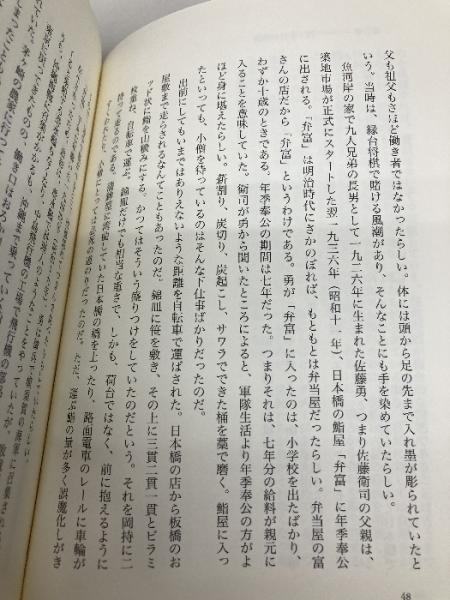 父も祖父もさほど働き者ではなかったらしい。体には頭から足の先まで入れ墨が彫られていたと
いう。当時は、縁台将棋で賭ける風潮があり、そんなことにも手を染めていたらしい。
魚河岸の家で九人兄弟の長男として一九二六年に生まれた佐藤勇、つまり佐藤衛司の父親は、
築地市場が正式にスタートした翌一九三六年(昭和十一年)、日本橋の鮨屋「弁富」に年季奉公
に出される。「弁富」は明治時代にさかのぼれば、もともとは弁当屋だったらしい。弁当屋の富
さんの店だから「弁富」というわけである。勇が「弁富」に入ったのは、小学校を出たばかり、
わずか十歳のときである。年季奉公の期間は七年だった。つまりそれは、七年分の給料が親元に
入ることを意味していた。衛司が勇から聞いたところによると、軍隊生活より年季奉公の方がよ
ほど身に堪えたらしい。薪割り、炭切り、炭起こし、サワラでできた桶を藁で磨く。鮨屋に入っ
たといっても、小僧を待っているのはそんな下仕事ばかりだったのだ。
出前にしてもいまではありえないような距離を自転車で運ばされた。日本橋の店から板橋のお
屋敷まで走らされるなんてこともあったのだ。錦皿に笹を敷き、その上に三貫二貫一貫とピラミ
ッド状に鮨を山積みにする。かつてはそういう盛りつけをしていたのだという。それを岡持に二
枚重ね、自転車で運ぶ。錦皿だけでも相当な重さで、しかも、荷台ではなく、前に抱えるように
持って走るのである。
日本橋の橋を上ったり、路面電車のレールに車輪が
ただ、運ぶ鮨の量が多く誤魔化しがき
工場で飛行機の部
沖縄まで乗っていったが、
働き口はおろ
48